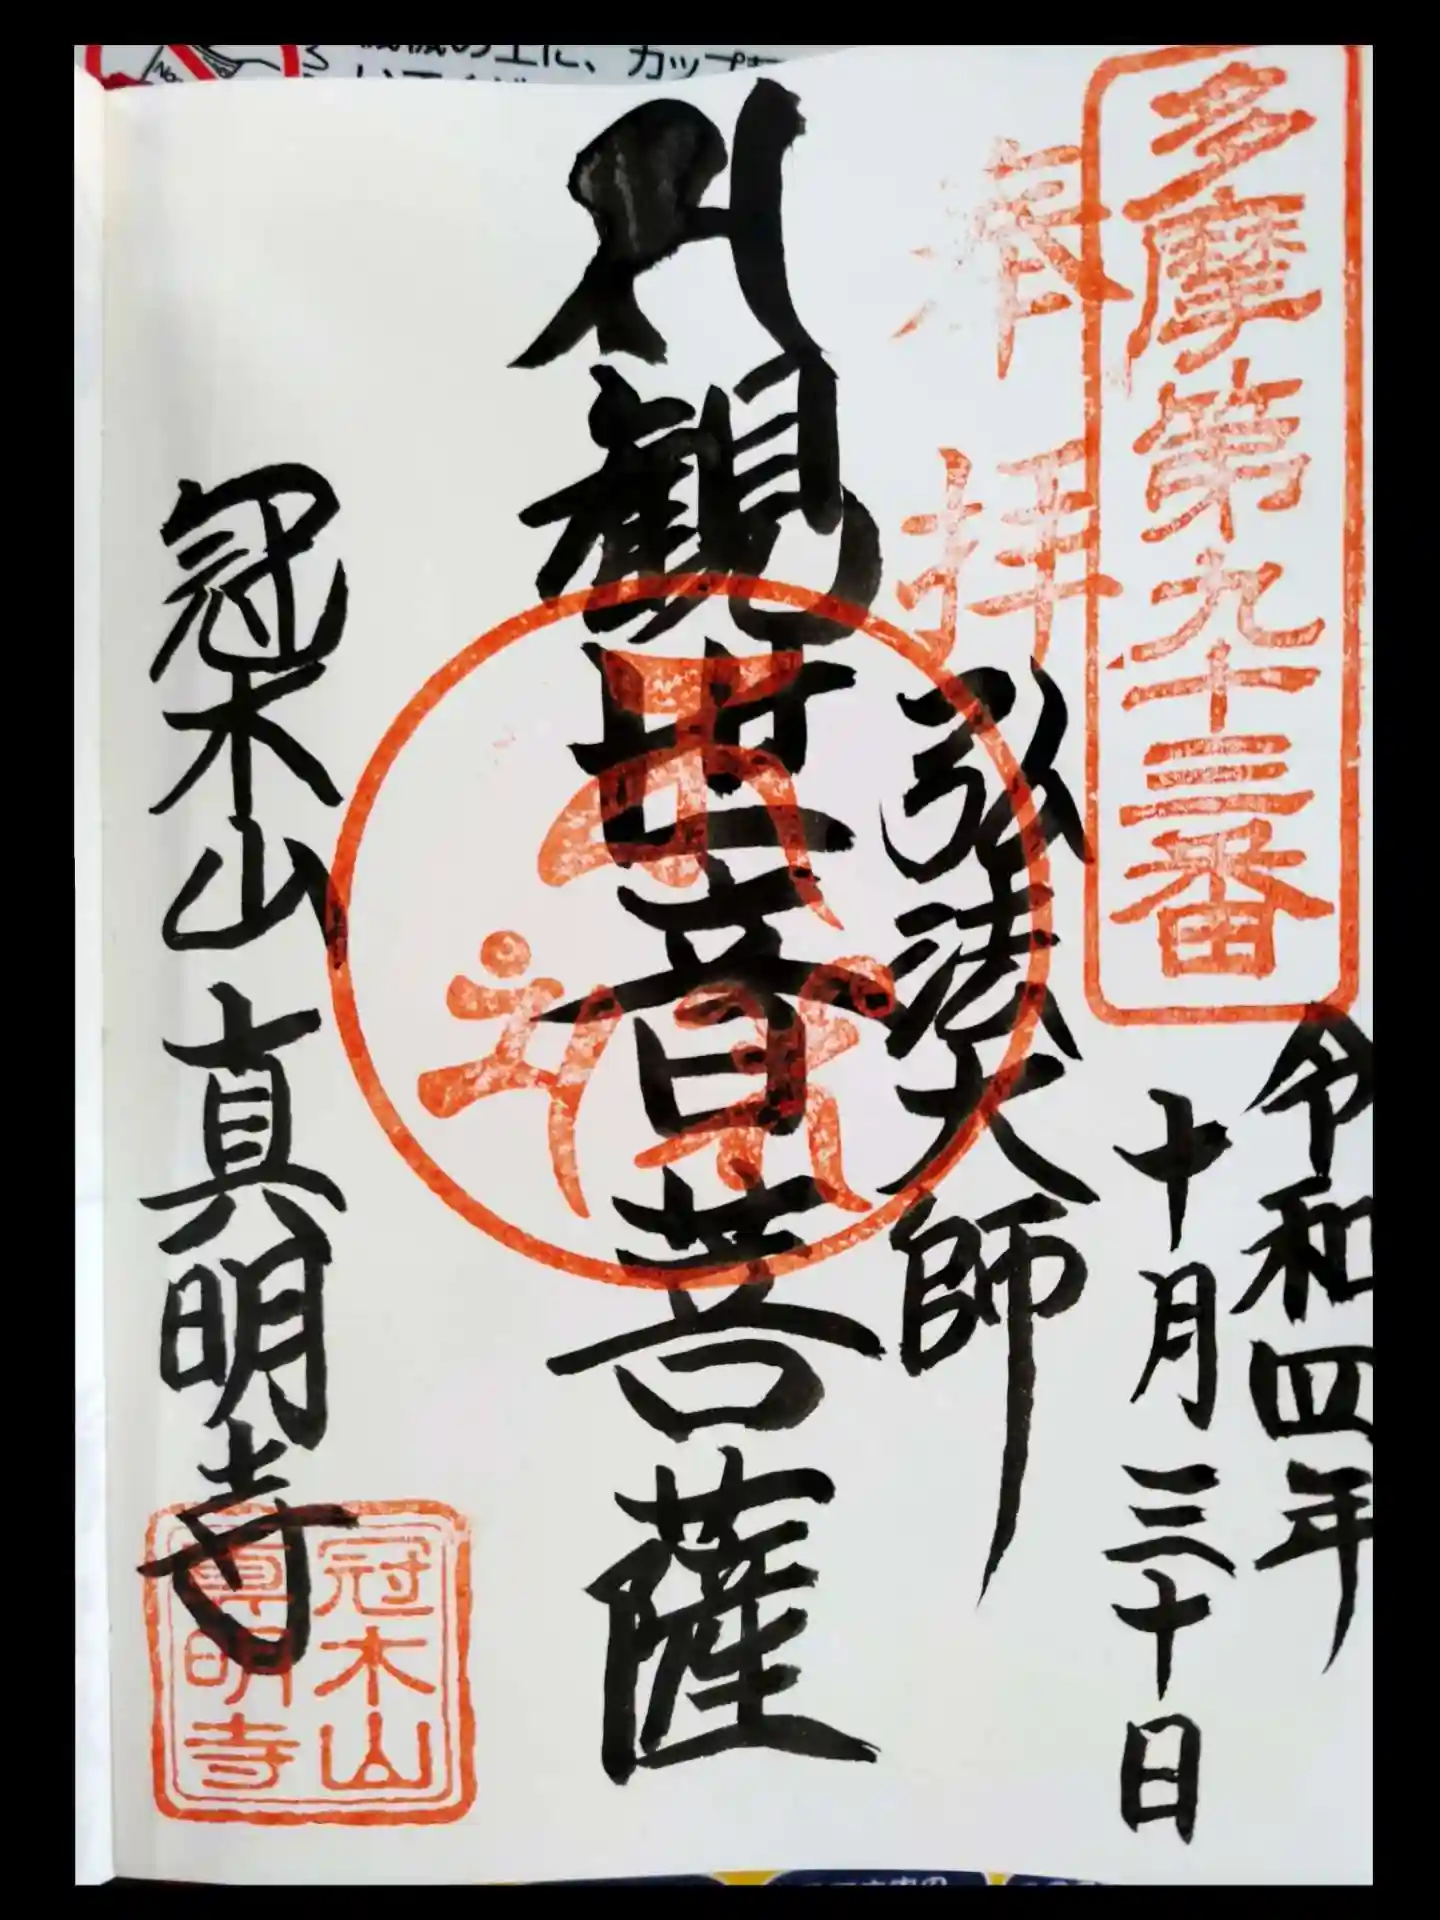 多摩第九十三番
奉拝
令和四年
十月三十日
弘法大師
観世音菩薩
冠木山 真明寺
冠木山
真明寺